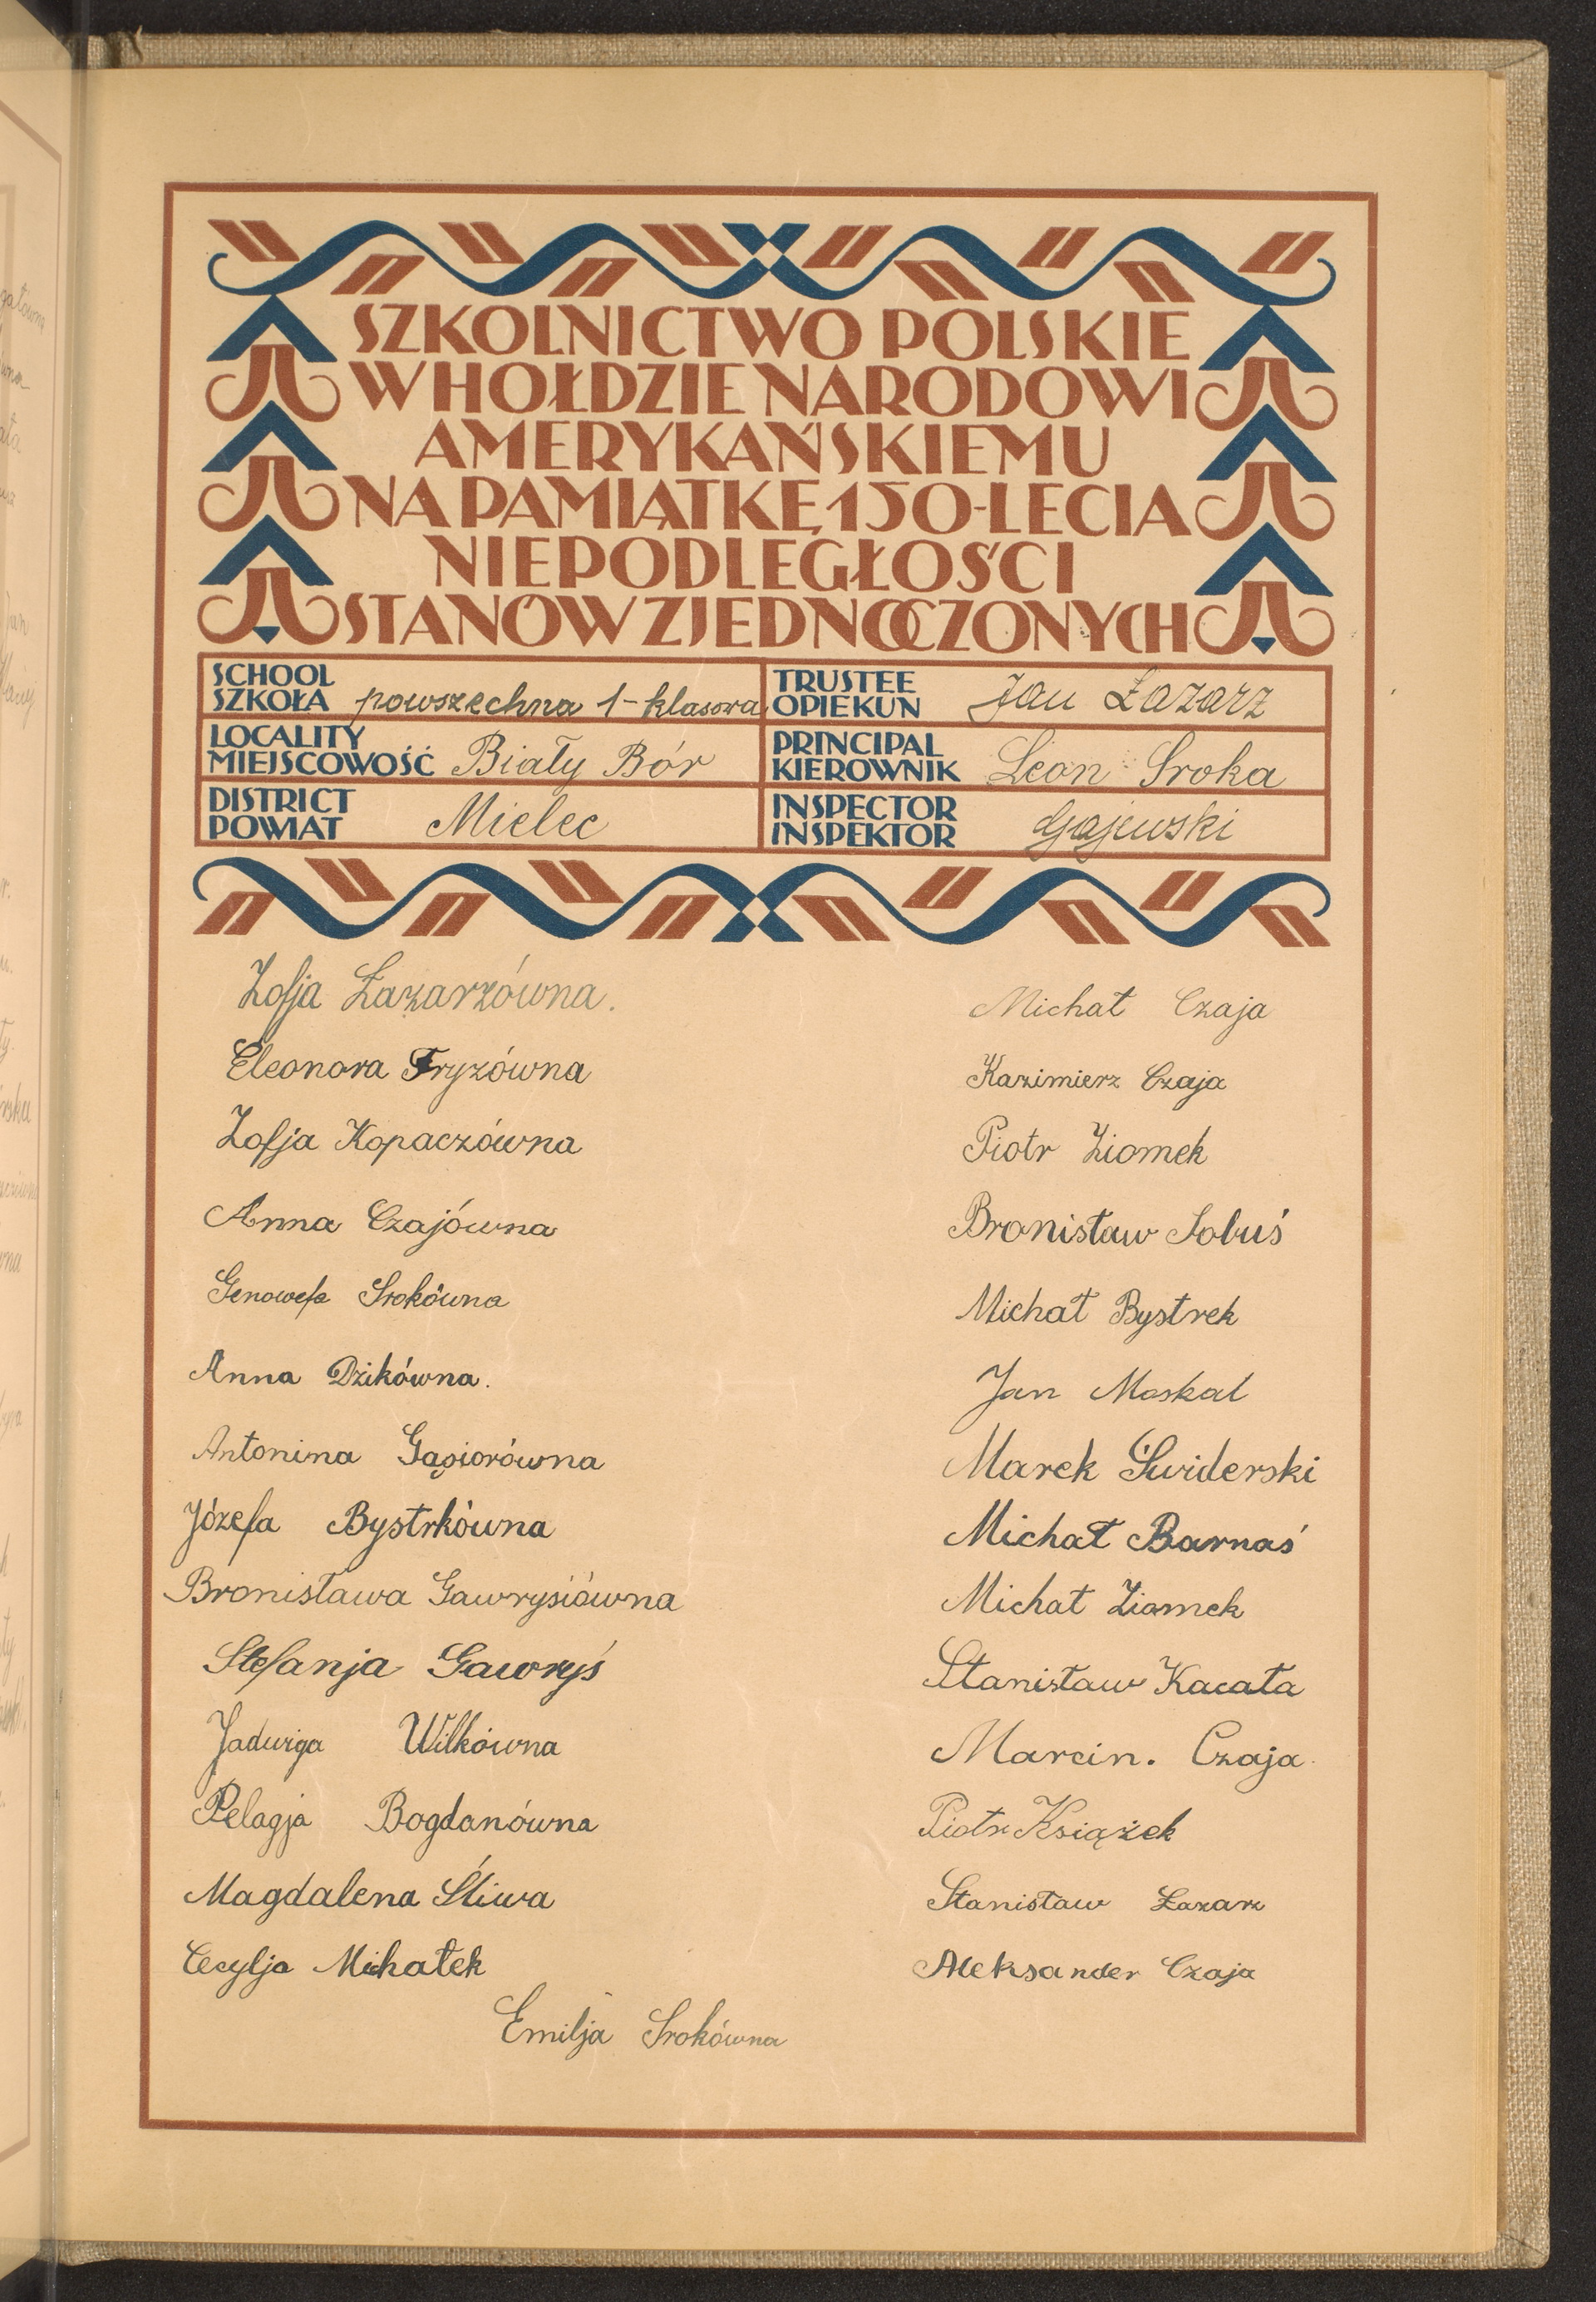 SZKOLNICTWO POLSKIE
W HOŁDZIE NARODOWI
AMERYKAŃSKIEMU
NA PAMIĄTKĘ 150-LECIA
NIEPODLEGŁOŚCI
STANÓW ZJEDNOCZONYCH
SCHOOL
SZKOŁA powszechna 1-klasowa
TRUSTEE
OPIEKUN Jan Łazarz
LOCALITY
MIEJSCOWOŚĆ Biały Bór
PRINCIPAL
KIEROWNIK Leon Sroka
DISTRICT
POWIAT Mielec
INSPECTOR
INSPEKTOR Gajewski
Zofja Łazarzówna.
Eleonora Fryzówna
Zofja Kopaczówna
Anna Czajówna
Genowefa Srokówna
Anna Dzikówna.
Antonina Gąsiorówna
Józefa Bystrkówna
Bronisława Gawrysiówna
Stefanja Gawryś
Jadwiga Wilkówna
Pelagja Bogdanówna
Magdalena Śliwa
Cecylja Michałek
Emilja Srokówna
Michał Czaja
Kazimierz Czaja
Piotr Ziomek
Bronisław Sobuś
Michał Bystrek
Jan Moskal
Marek Świderski
Michał Barnaś
Michał Ziomek
Stanisław Kacała
Marcin. Czaja
Piotr Książek
Stanisław Łazarz
Aleksander Czaja